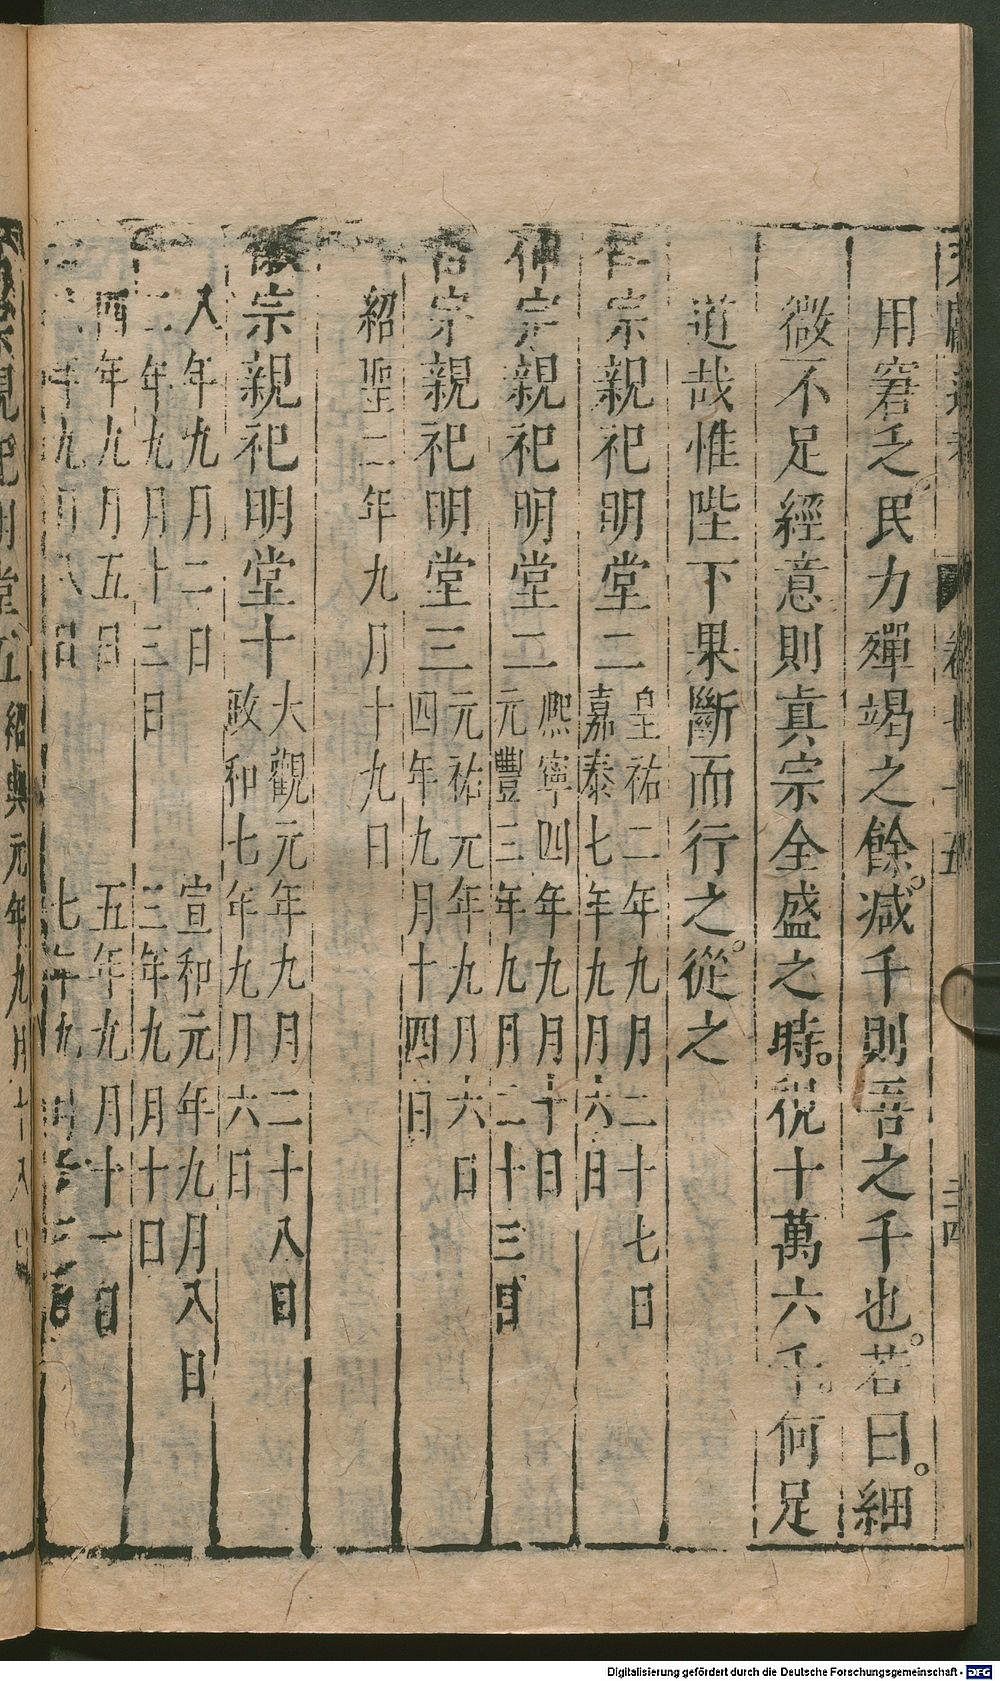 用窘乏民力殫竭之餘減千則吾之千也若曰細
微不足經意則真宗全盛之時稅十萬六千何足
道哉惟陛下果斷而行之從之
仁宗親祀明堂二
皇祐二年九月二十七日
嘉泰七年九月六日
神宗親祀明堂二
熈寧四年九月十日
元豐三年九月二十三日
哲宗親祀明堂三
元祐元年九月六日
四年九月十四日
紹聖二年九月十九日
徽宗親祀明堂十
大觀元年九月二十八日
政和七年九月六日
八年九月二日
宣和元年九月八日
二年九月十三日
三年九月十日
四年九月五日
五年九月十一日
年九月八日
七年九
宗親祀明堂五紹興元年九月十八日
Digitalisierung gefördert durch die Deutsche Forschungsgemeinschaft - DFG